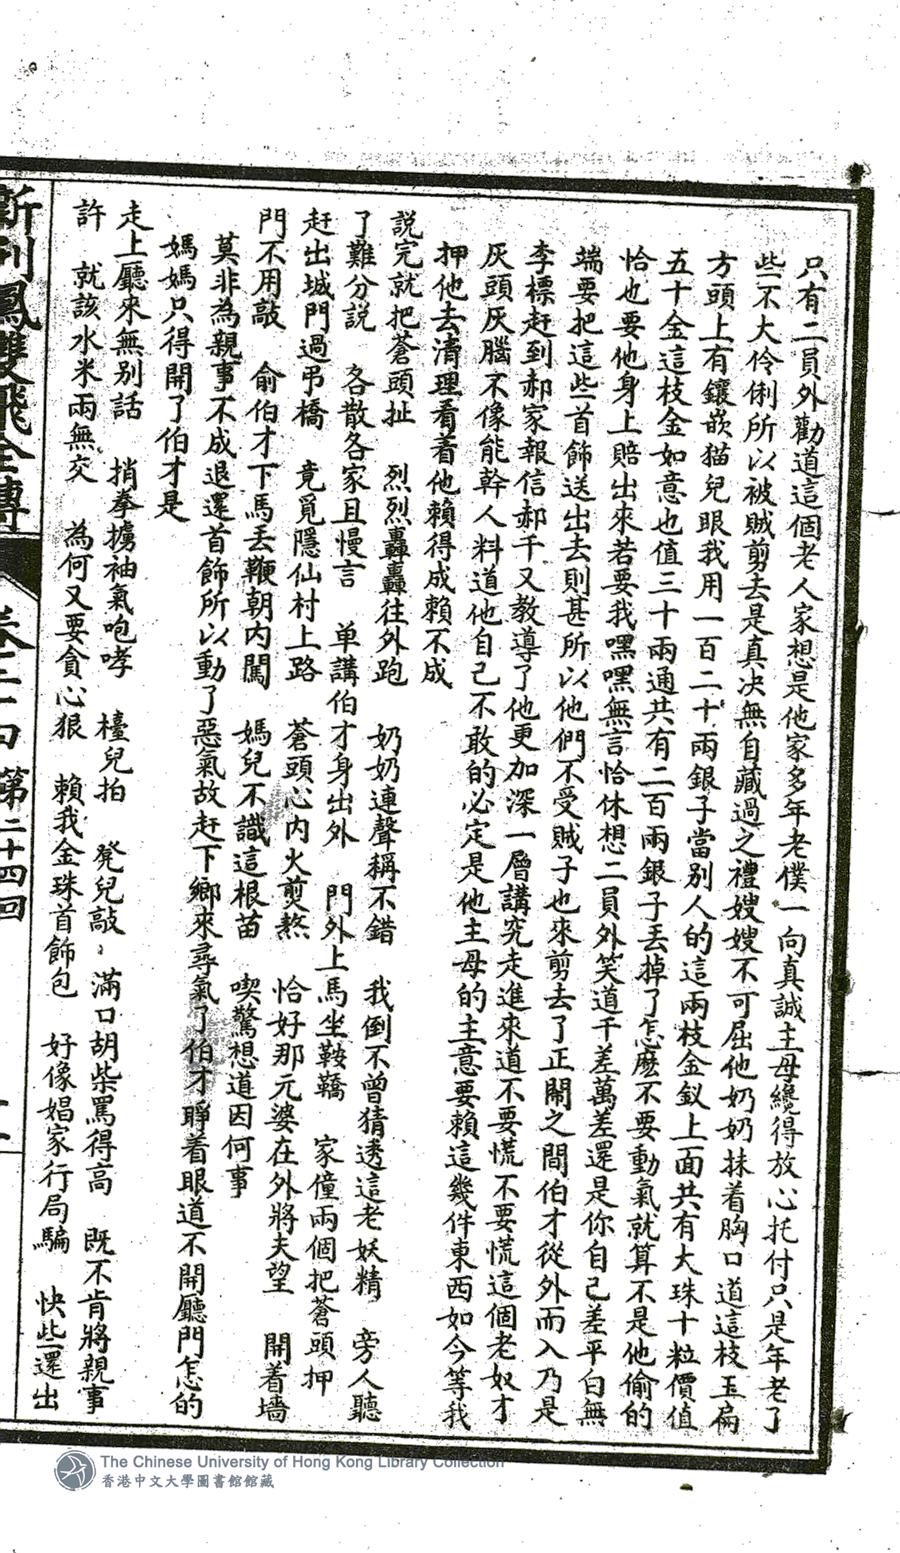 只有二員外勸道這個老人家想是他家多年老僕一向真誠主母纔得放心托付只是年老了
些不大伶俐所以被賊剪去是真決無自藏過之禮嫂嫂不可屈他奶奶抹着胸口道這枝玉扁
方頭上有鑲嵌猫兒眼我用一百二十兩銀子當别人的這兩枝金釵上面共有大珠十粒價值
五十金這枝金如意也值三十兩通共有二百兩銀子丢掉了怎麽不要動氣就算不是他偷的
恰也要他身上賠出來若要我嘿嘿無言恰休想二員外笑道千差萬差還是你自己差平白無
端要把這些首飾送出去則甚所以他們不受賊子也來剪去了正鬧之間伯才從外而入乃是
李標赶到郝家報信郝千又教導了他更加深一層講究走進來道不要慌不要慌這個老奴才
灰頭灰腦不像能幹人料道他自己不敢的必定是他主母的主意要賴這幾件東西如今等我
押他去清理看着他賴得成賴不成
説完就把蒼頭扯　烈烈轟轟往外跑　奶奶連聲稱不錯　我倒不曾猜透這老妖精　旁人聽
了難分説　各散各家且慢言　单講伯才身出外　門外上馬坐鞍鞽　家僮兩個把蒼頭押
赶出城門過吊橋　竟覓隱仙村上路　蒼頭心内火剪熬　恰好那元婆在外將夫望　開着墻
門不用敲　俞伯才下馬丢鞭朝内闖　媽兒不識這根苗　喫驚想道因何事
莫非為親事不成退還首飾所以動了惡氣故赶下鄉來尋氣了伯才睜着眼道不開廳門怎的
媽媽只得開了伯才是
走上廳來無别話　捎拳擄袖氣咆哮　檯兒拍　凳兒敲　滿口胡柴罵得高　既不肯將親事
許　就該水米兩無交　為何又要貪心狠　賴我金珠首飾包　好像娼家行局騙　快些還出
新刊鳳雙飛全傳　卷二十四　第二十四回
The Chinese University of Hong Kong Library Collection
香港中文大學圖書館館藏